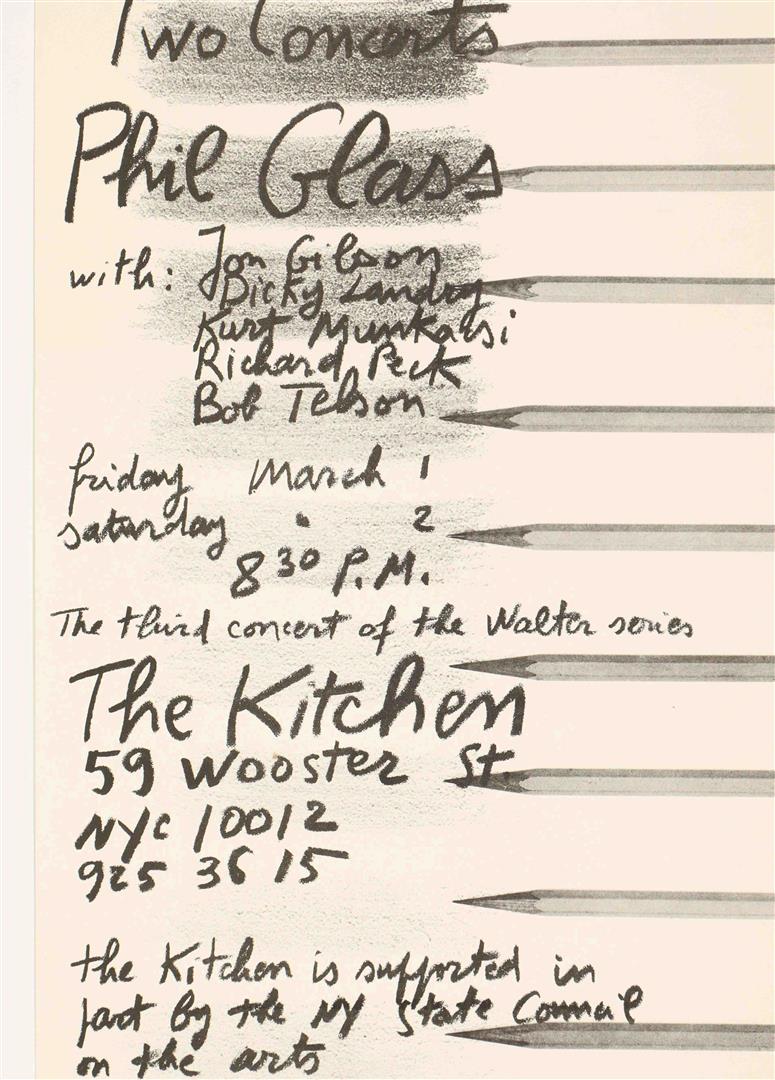 Two Concerts
Phil Glass
with: Jon Gibson
Dicky Landry
Kurt Munkacsi
Richard Peck
Bob Telson
friday March 1
saturday " 2
8 30 P.M.
The third concert of the Walter series
The Kitchen
59 Wooster St.
NYC 10012
925 3615
the Kitchen is supported in
part by the NY State Council
on the arts